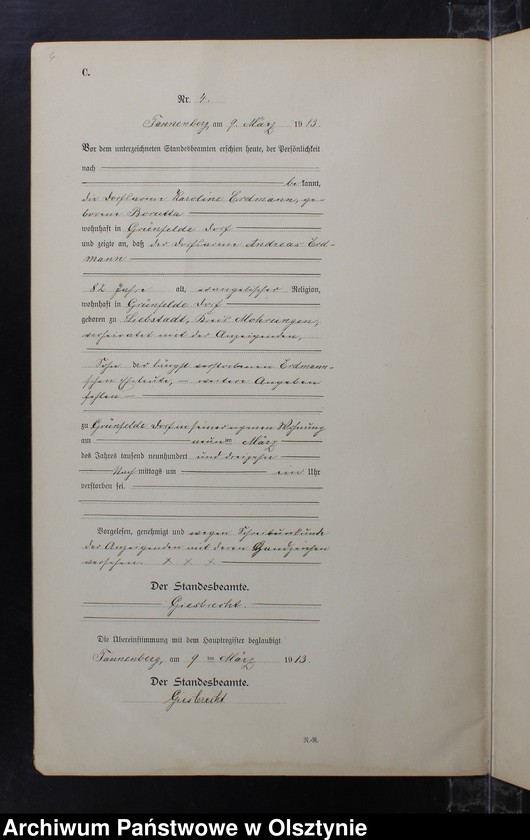 C.
Nr. 4.
Tannenberg, am 9. März 1913.
Vor dem unterzeichneten Standesbeamten erschien heute, der Persönlichkeit
nach
bekannt,
die Dorfarme Karoline Erdmann, ge-
borene Borutta
wohnhaft in Grünfelde Dorf
und zeigte an, daß der Dorfarme Andreas Erd-
mann
82 Jahre alt, evangelischer Religion,
wohnhaft in Grünfelde Dorf
geboren zu Liebstadt, Kreis Mohrungen,
verheiratet mit der Anzeigenden,
Sohn der längst verstorbenen Erdmann-
schen Eheleute, – weitere Angaben
fehlen –
zu Grünfelde Dorf in seiner eigenen Wohnung
am neunten März
des Jahres tausend neunhundert und dreizehn
Nach mittags um ein Uhr
verstorben sei.
Vorgelesen, genehmigt und wegen Schreibunkunde
der Anzeigenden mit deren Handzeichen
versehen. + + +
Der Standesbeamte.
Giesbrecht.
Die Übereinstimmung mit dem Hauptregister beglaubigt
Tannenberg, am 9ten März 1913.
Der Standesbeamte.
Giesbrecht
R.-R.
Archiwum Państwowe w Olsztynie